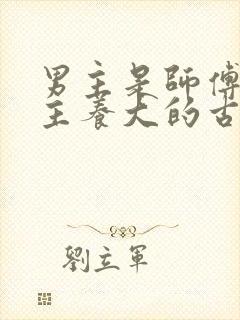 男主是師傅
主養大的古
劉立軍